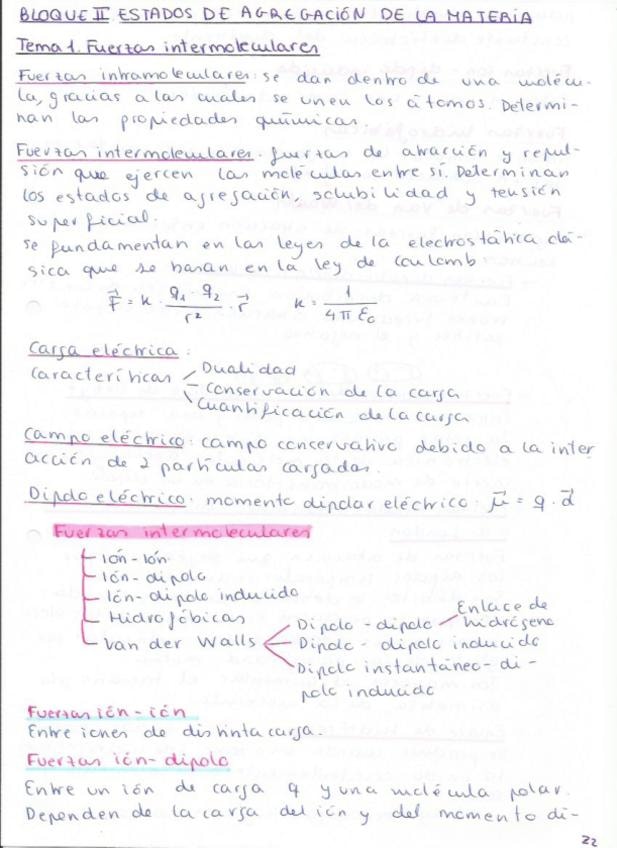 BLOQUE II ESTADOS DE AGREGACIÓN DE LA MATERIA
Tema 1. Fuerzas intermoleculares
Fuerzas intramoleculares: se dan dentro de una molécu-
la, gracias a las cuales se unen los átomos. Determi-
nan las propiedades químicas.
Fuerzas intermoleculares: fuerzas de atracción y repul-
sión que ejercen las moléculas entre sí. Determinan
los estados de agregación, solubilidad y tensión
superficial.
Se fundamentan en las leyes de la electrostática clá-
sica que se basan en la ley de Coulomb
F⃗ = K · q₁ · q₂ / r² · r⃗ K = 1 / 4π ε₀
Carga eléctrica:
Características
Dualidad
Conservación de la carga
Cuantificación de la carga
Campo eléctrico: campo conservativo debido a la inter
acción de 2 partículas cargadas.
Dipolo eléctrico: momento dipolar eléctrico: μ⃗ = q · d⃗
Fuerzas intermoleculares
Ión - Ión
Ión - dipolo
Ión - dipolo inducido
Hidrofóbicas
Van der Walls
Dipolo - dipolo
Enlace de
hidrógeno
Dipolo - dipolo inducido
Dipolo instantáneo - di-
polo inducido
Fuerzas ión - ión
Entre iones de distinta carga.
Fuerzas ión - dipolo
Entre un ión de carga q y una molécula polar.
Dependen de la carga del ión y del momento di-
22